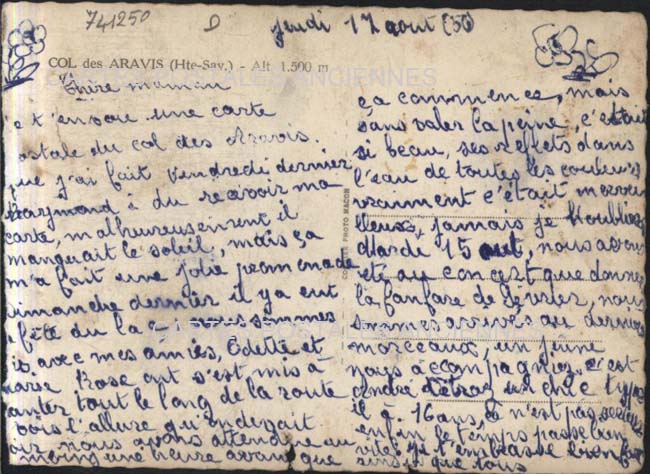 741250
D
jeudi 17 août (50)
COL des ARAVIS (Hte-Sav.) - Alt 1.500 m
CARTES POSTALES ANCIENNES
Chère maman
je t'envoie une carte
postale du col des Aravis.
que j'ai fait Vendredi dernier
Raymond à du recevoir ma
carte, malheureusement il
manquait le soleil, mais ça
m'a fait une jolie promenade
dimanche dernier il y a eut
fête du lac nous sommes
avec mes amies, Odette et
Rose ont s'est mis à
chanter tout le long de la route
vois l'allure qu'on devait
nous avons attendue au
moins une heure avant que
COMBIER PHOTO MACON
ça commence, mais
sans valer la peine, c'était
si beau, ses reflets dans
l'eau de toutes les couleurs
vraiment c'était mervei
lleux, jamais je
Mardi 15 aout, nous avons
été au concert que donner
la fanfare de Sévrier, nous
sommes arrivés au derniers
morceaux, un jeune
nous à accompagnier, c'est
André
il à 16 ans, n'est pas
enfin le temps passe bien
vite. je t'embrasse bien fort
ainsi que tous